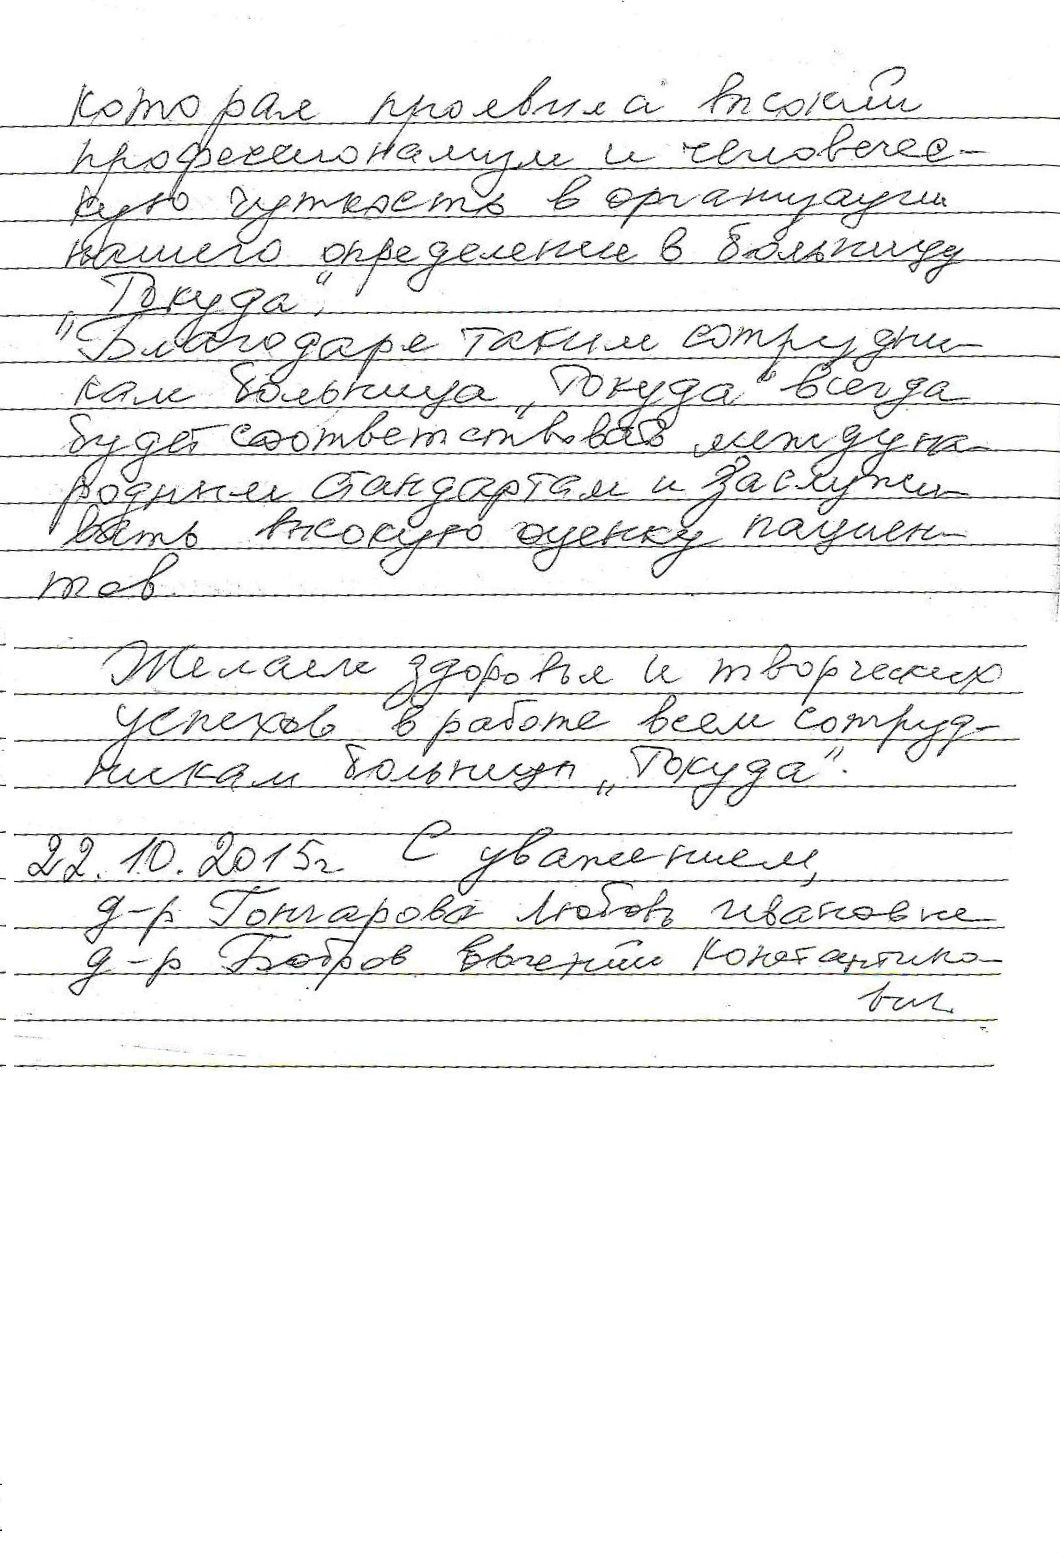 которая проявила высокий
профессионализм и человечес-
кую чуткость в организации
нашего определение в больницу
„Токуда“.
Благодаря таким сотрудни-
кам больница „Токуда“ всегда
будет соответствовать междуна-
родным стандартам и заслужи-
вать высокую оценку пациен-
тов.
Желаем здоровья и творческих
успехов в работе всем сотруд-
никам больницы „Токуда“.
22.10.2015г. С уважением,
д-р Гончарова Любовь Ивановна
д-р Бобров Евгений Константино-
вич